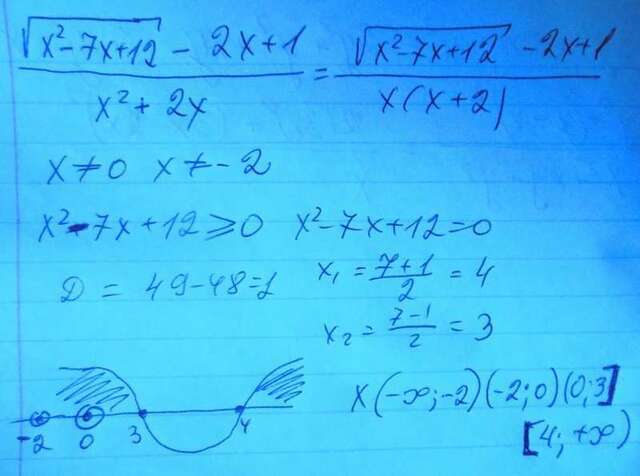 √(x²-7x+12) - 2x+1 / x²+2x = √(x²-7x+12) -2x+1 / x(x+2)
x≠0 x≠-2
x²-7x+12≥0 x²-7x+12=0
D = 49-48=1 x₁ = (7+1)/2 = 4
x₂ = (7-1)/2 = 3
-2 0 3 4 x(-∞;-2)(-2;0)(0;3]
[4;+∞)